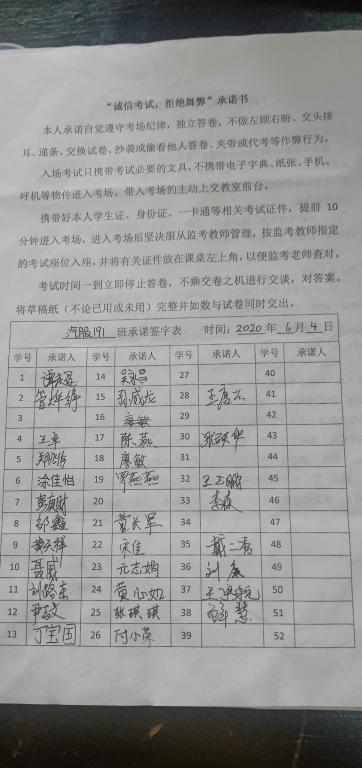 “诚信考试，拒绝舞弊”承诺书
本人承诺自觉遵守考场纪律，独立答卷，不做左顾右盼、交头接
耳、递条、交换试卷、抄袭或偷看他人答卷、夹带或代考等作弊行为。
入场考试只携带考试必要的文具，不携带电子字典、纸张、手机、
呼机等物件进入考场，带入考场的主动上交教室前台。
携带好本人学生证、身份证、一卡通等相关考试证件，提前 10
分钟进入考场，进入考场后坚决服从监考教师管理，按监考教师指定
的考试座位入座，并将有关证件放在课桌左上角，以便监考老师查对。
考试时间一到立即停止答卷，不乘交卷之机进行交谈，对答案。
将草稿纸（不论已用或未用）完整并如数与试卷同时交出。
汽服191 班承诺签字表 时间：2020 年 6 月 4 日
学号 承诺人 学号 承诺人 学号 承诺人 学号 承诺人
1 14 吴永昌 27 40
2 15 28 41
3 16 廖敏 29 42
4 17 陈燕 30 43
5 18 廖敏 31 44
6 涂佳怡 19 罗燕燕 32 45
7 20 33 李森 46
8 邹鑫 21 黄长军 34 47
9 黄天祥 22 宋佳 35 戴二秀 48
10 聂威 23 元志娟 36 49
11 刘路东 24 黄心如 37 50
12 25 张琪琪 38 51
13 丁宝国 26 付小荣 39 52